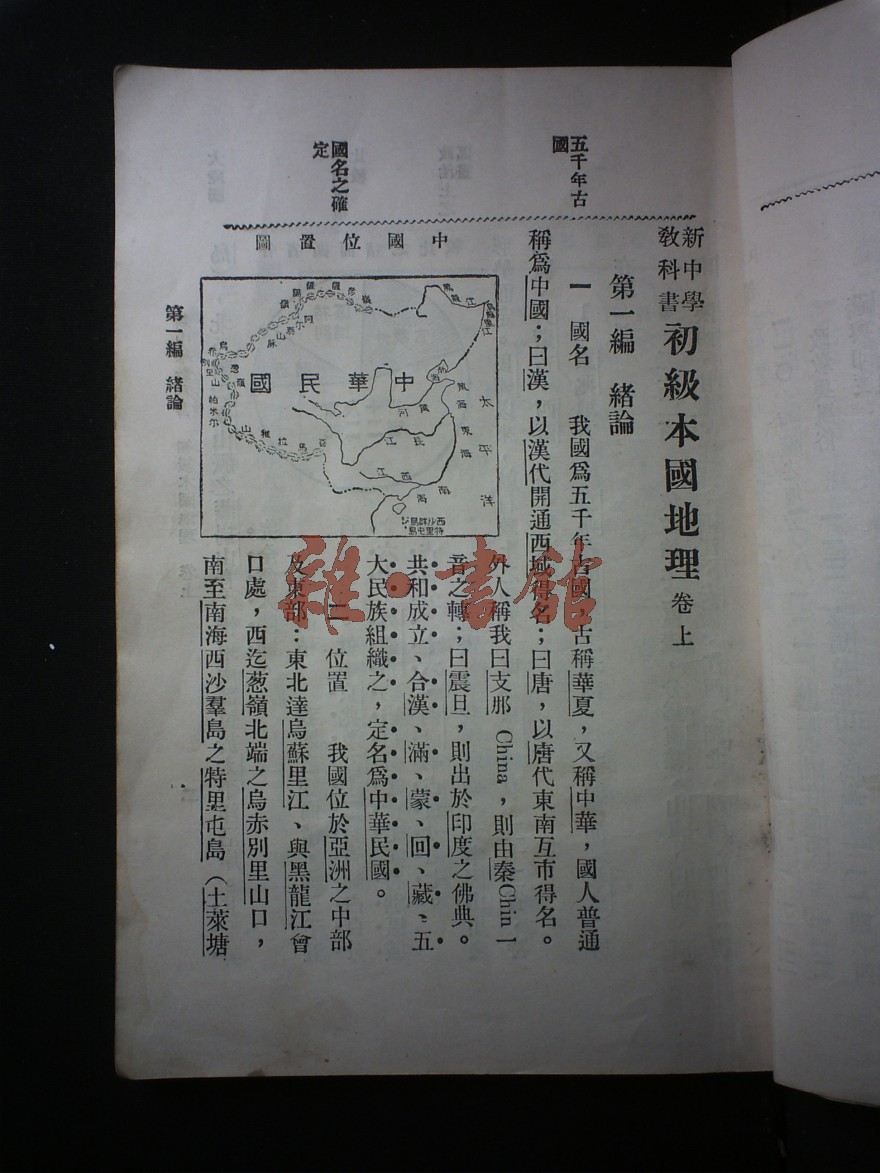 新中學教科書初級本國地理卷上
第一編　緒論
五千年古國
一　國名　我國爲五千年古國，古稱華夏，又稱中華，國人普通
稱爲中國；曰漢，以漢代開通西域得名；曰唐，以唐代東南互市得名。
外人稱我曰支那 China，則由秦Chin一
音之轉；曰震旦，則出於印度之佛典。
國名之確定
共和成立、合漢、滿、蒙、回、藏、五
大民族組織之，定名爲中華民國。
二　位置　我國位於亞洲之中部
及東部：東北達烏蘇里江、與黑龍江會
口處，西迄葱嶺北端之烏赤別里山口，
南至南海西沙羣島之特里屯島（土萊塘
中國位置圖
中華民國
太平洋
東海
黃海
渤海
南海
黃河
長江
西江
黑龍江
帕米尔
西沙群島
特里屯島
第一編　緒論
雜·書館